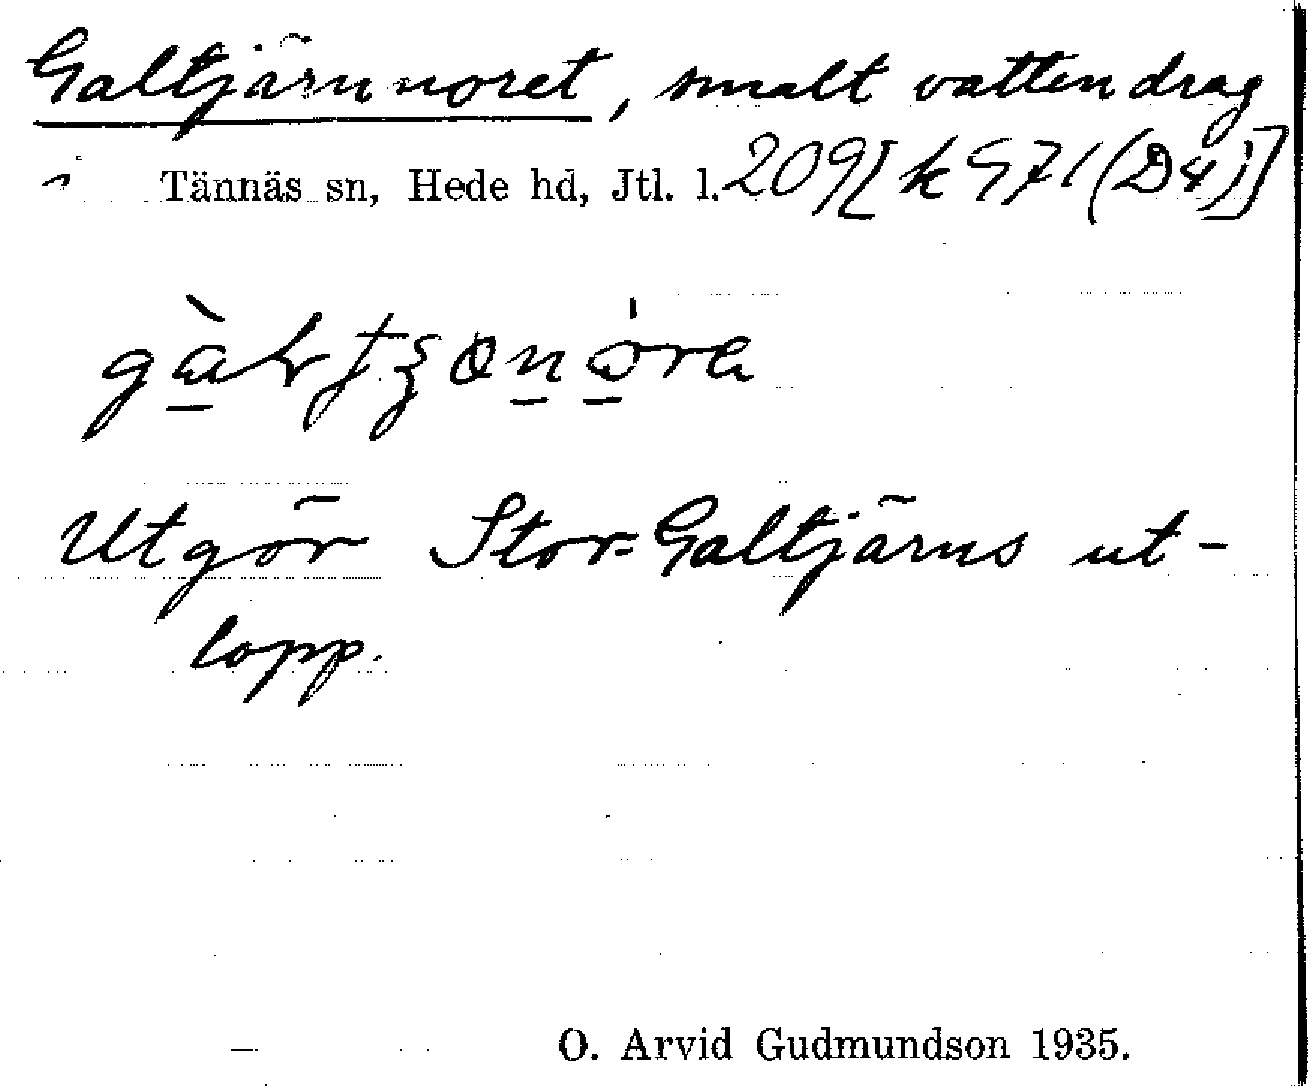 Galtjärnnoret, smalt vattendrag
i Tännäs sn, Hede hd, Jtl. l. 209[k 971 (D4)]
Utgör Stor-Galtjärns ut-
lopp.
O. Arvid Gudmundson 1935.